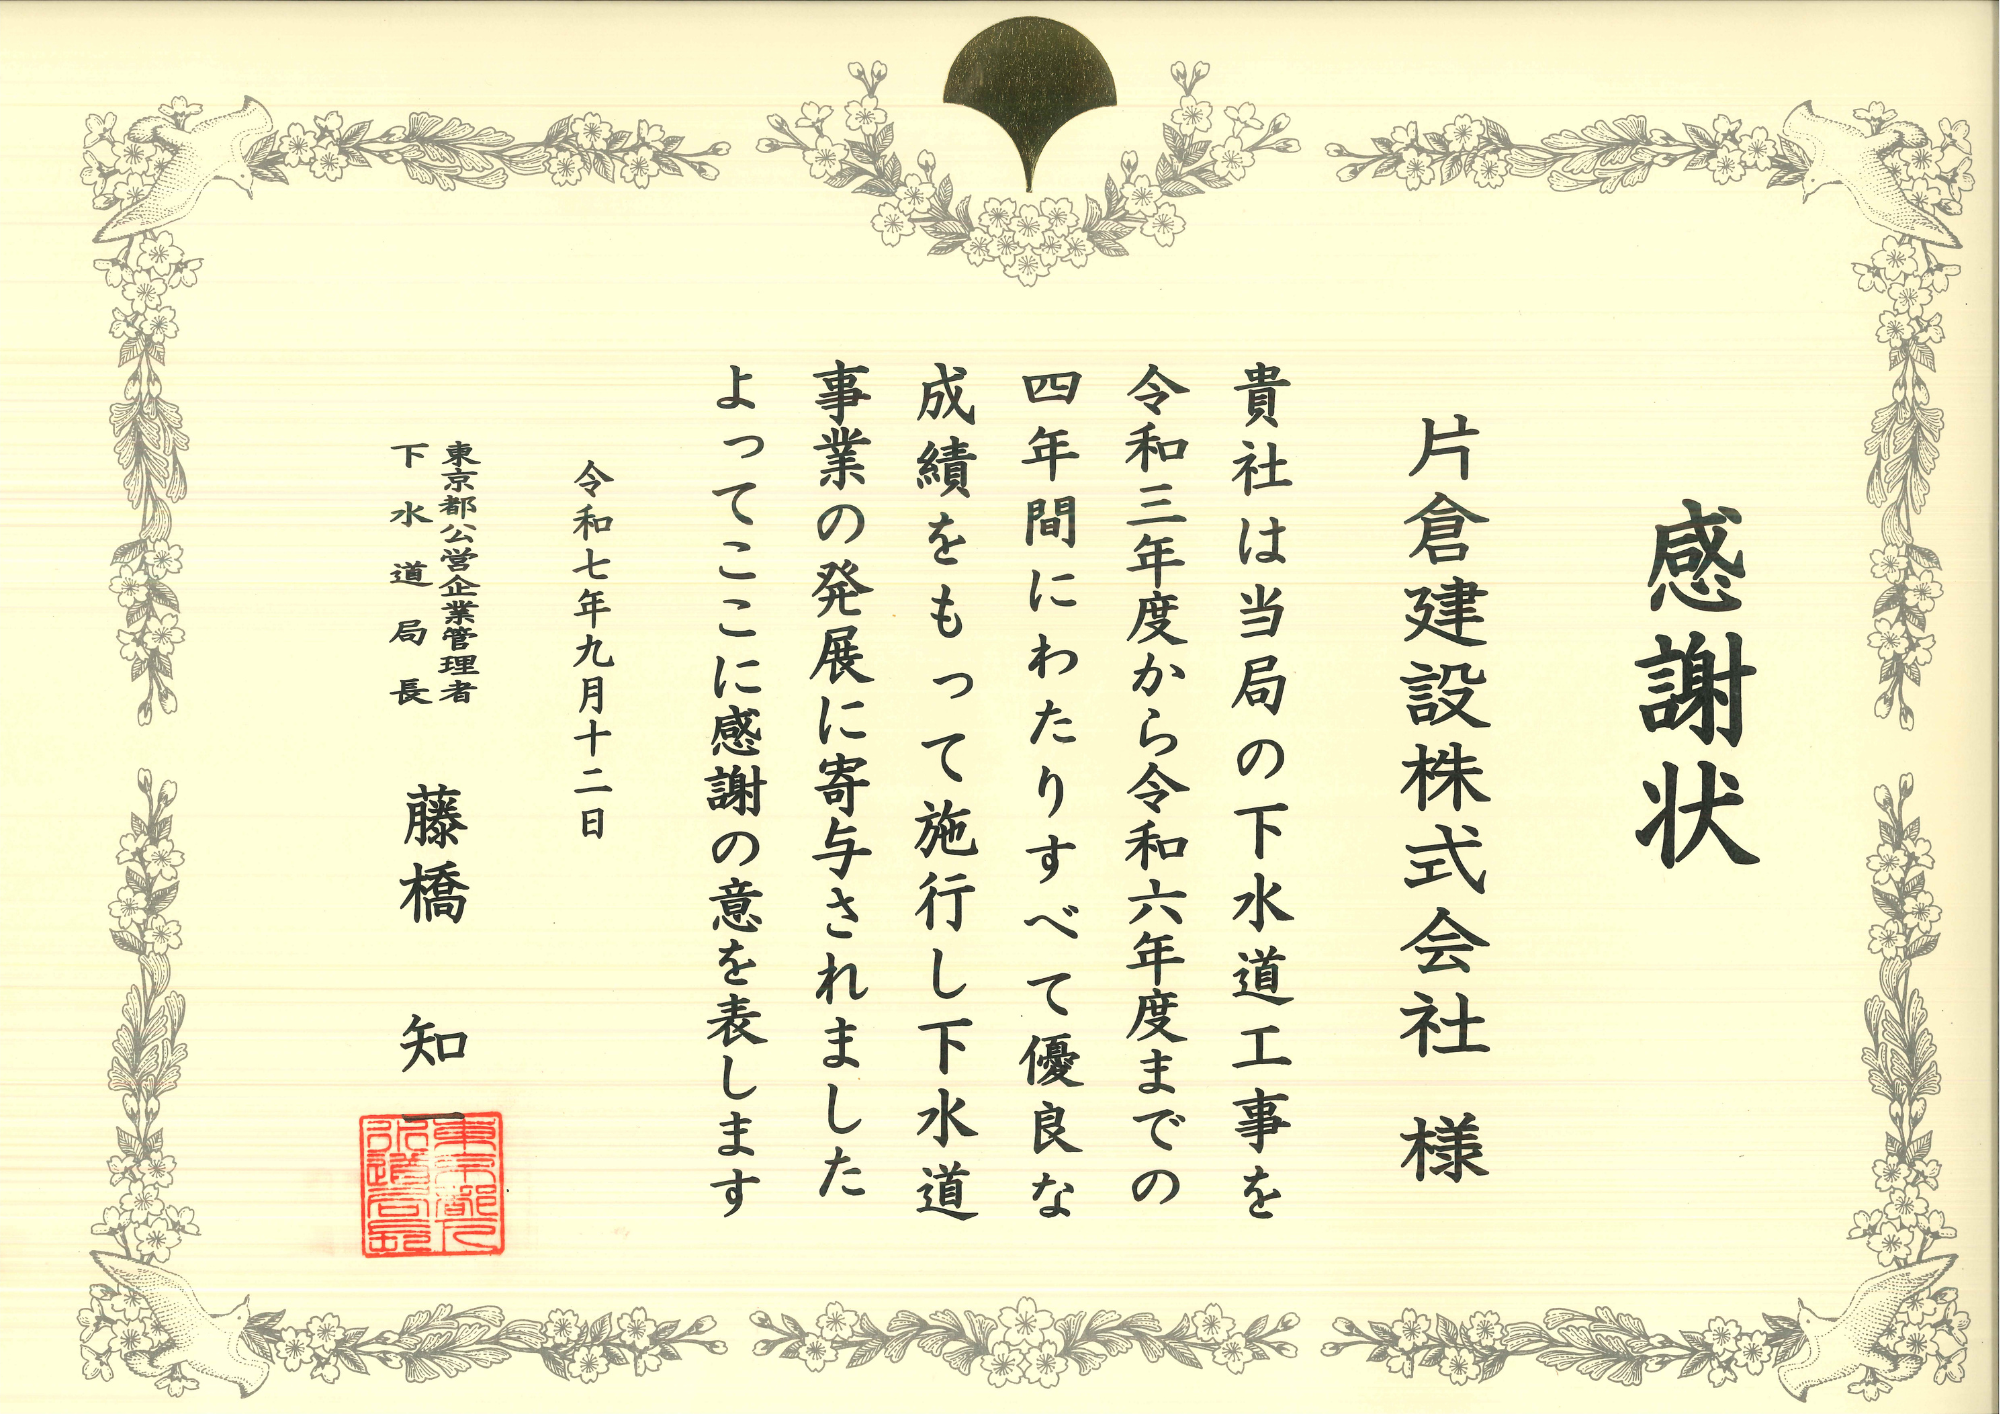 感謝状
片倉建設株式会社 様
貴社は当局の下水道工事を
令和三年度から令和六年度までの
四年間にわたりすべて優良な
成績をもって施行し下水道
事業の発展に寄与されました
よってここに感謝の意を表します
令和七年九月十二日
東京都公営企業管理者
下水道局長
藤橋 知一
東京都下
水道局長